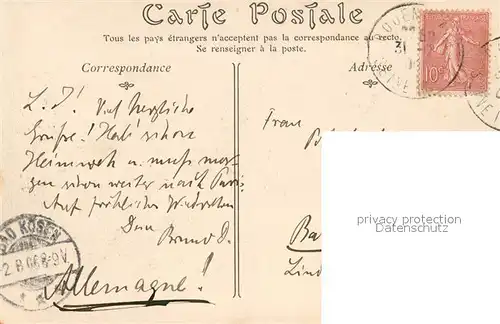 Carte Postale
Tous les pays étrangers n'acceptent pas la correspondance au recto.
Se renseigner à la poste.
Correspondance
Adresse
10c
L. J! Viel herzliche
Grüße! Hab' schon
Heimweh u. muß mor-
gen schon weiter nach Paris.
Auf fröhliches Wiedersehen
Dein
Bruno D.
Allemagne!
Frau
Ba
Lind
BAD KÖSEN
8-9V.
privacy protection
watermark